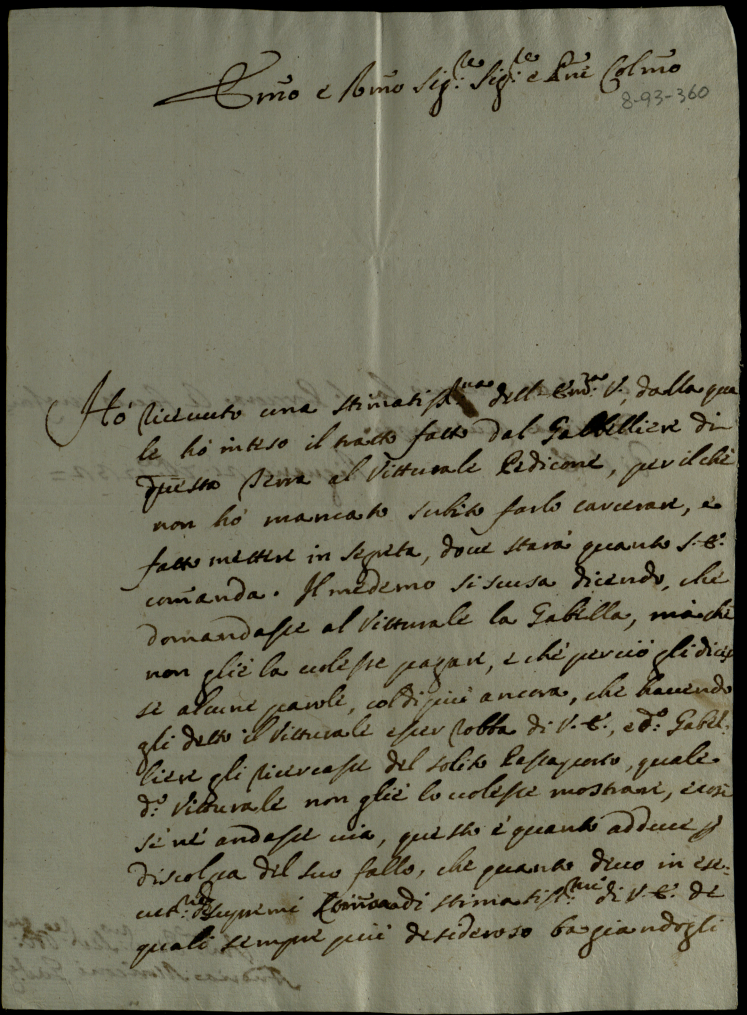 Em̃o e Rm̃o Sig.re Sig.re e Pñe Colm̃o
8-93-360
Hò riceuuto una stimatiss.ma dell' Em.za V., dalla qua
le hò inteso il tratto fatto dal Gabelliere di
questa Terra al Vitturale Pedicone, per il che
non hò mancato subito farlo carcerare, e
fatto mettere in segreta, doue starà quanto S. E.
com̃anda. Il medemo si scusa dicendo, che
domandasse al Vitturale la Gabella, mà che
non gliè la uolesse pagare, e che perciò gli dices
se alcune parole, col di più ancora, che hauendo
gli detto il Vitturale esser robba di V. E., e d.o Gabel-
liere gli ricercasse del solito Passaporto, quale
d.o Vitturale non gliè lo uolesse mostrare, e così
sè nè andasse uia, questo è quanto adduce p
discolpa del suo fallo, che quanto deuo in ese-
cut.ne supremi Com̃andi stimatiss.mi di V. E. de
quali sempre più desideroso bagiandogli